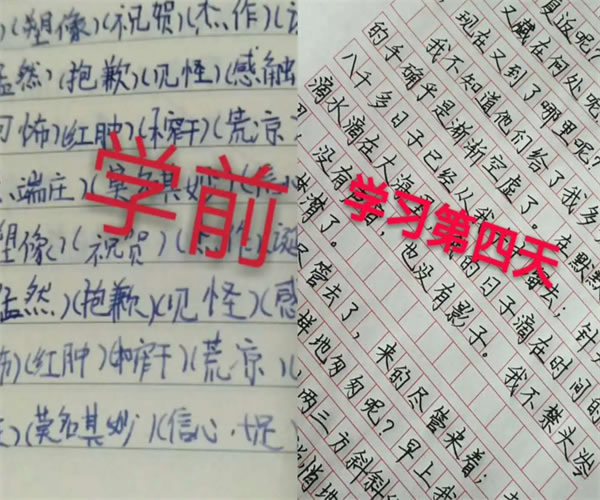 )(塑像)(祝贺)(杰作)(
然)(抱歉)(见怪)(感触
怖)(红肿)(荒凉
端庄)(莫名其妙)(信心
塑像)(祝贺)(杰作)(诞
然)(抱歉)(见怪)(感
怖)(红肿)(荒凉)(
)(莫名其妙)(信心十足
学前
返呢?
又藏在何处呢
现在又到了哪里呢?
我不知道他们给了我多
的手确乎是渐渐空虚了。在默默
八千多日子已经从我 去；针
滴水滴在大海 的日子滴在时间的
没有 ，也没有影子。我不禁头涔
消了。
尽管去了，来的尽管来着；
样地匆匆呢?早上我
两三方斜斜
学习第四天